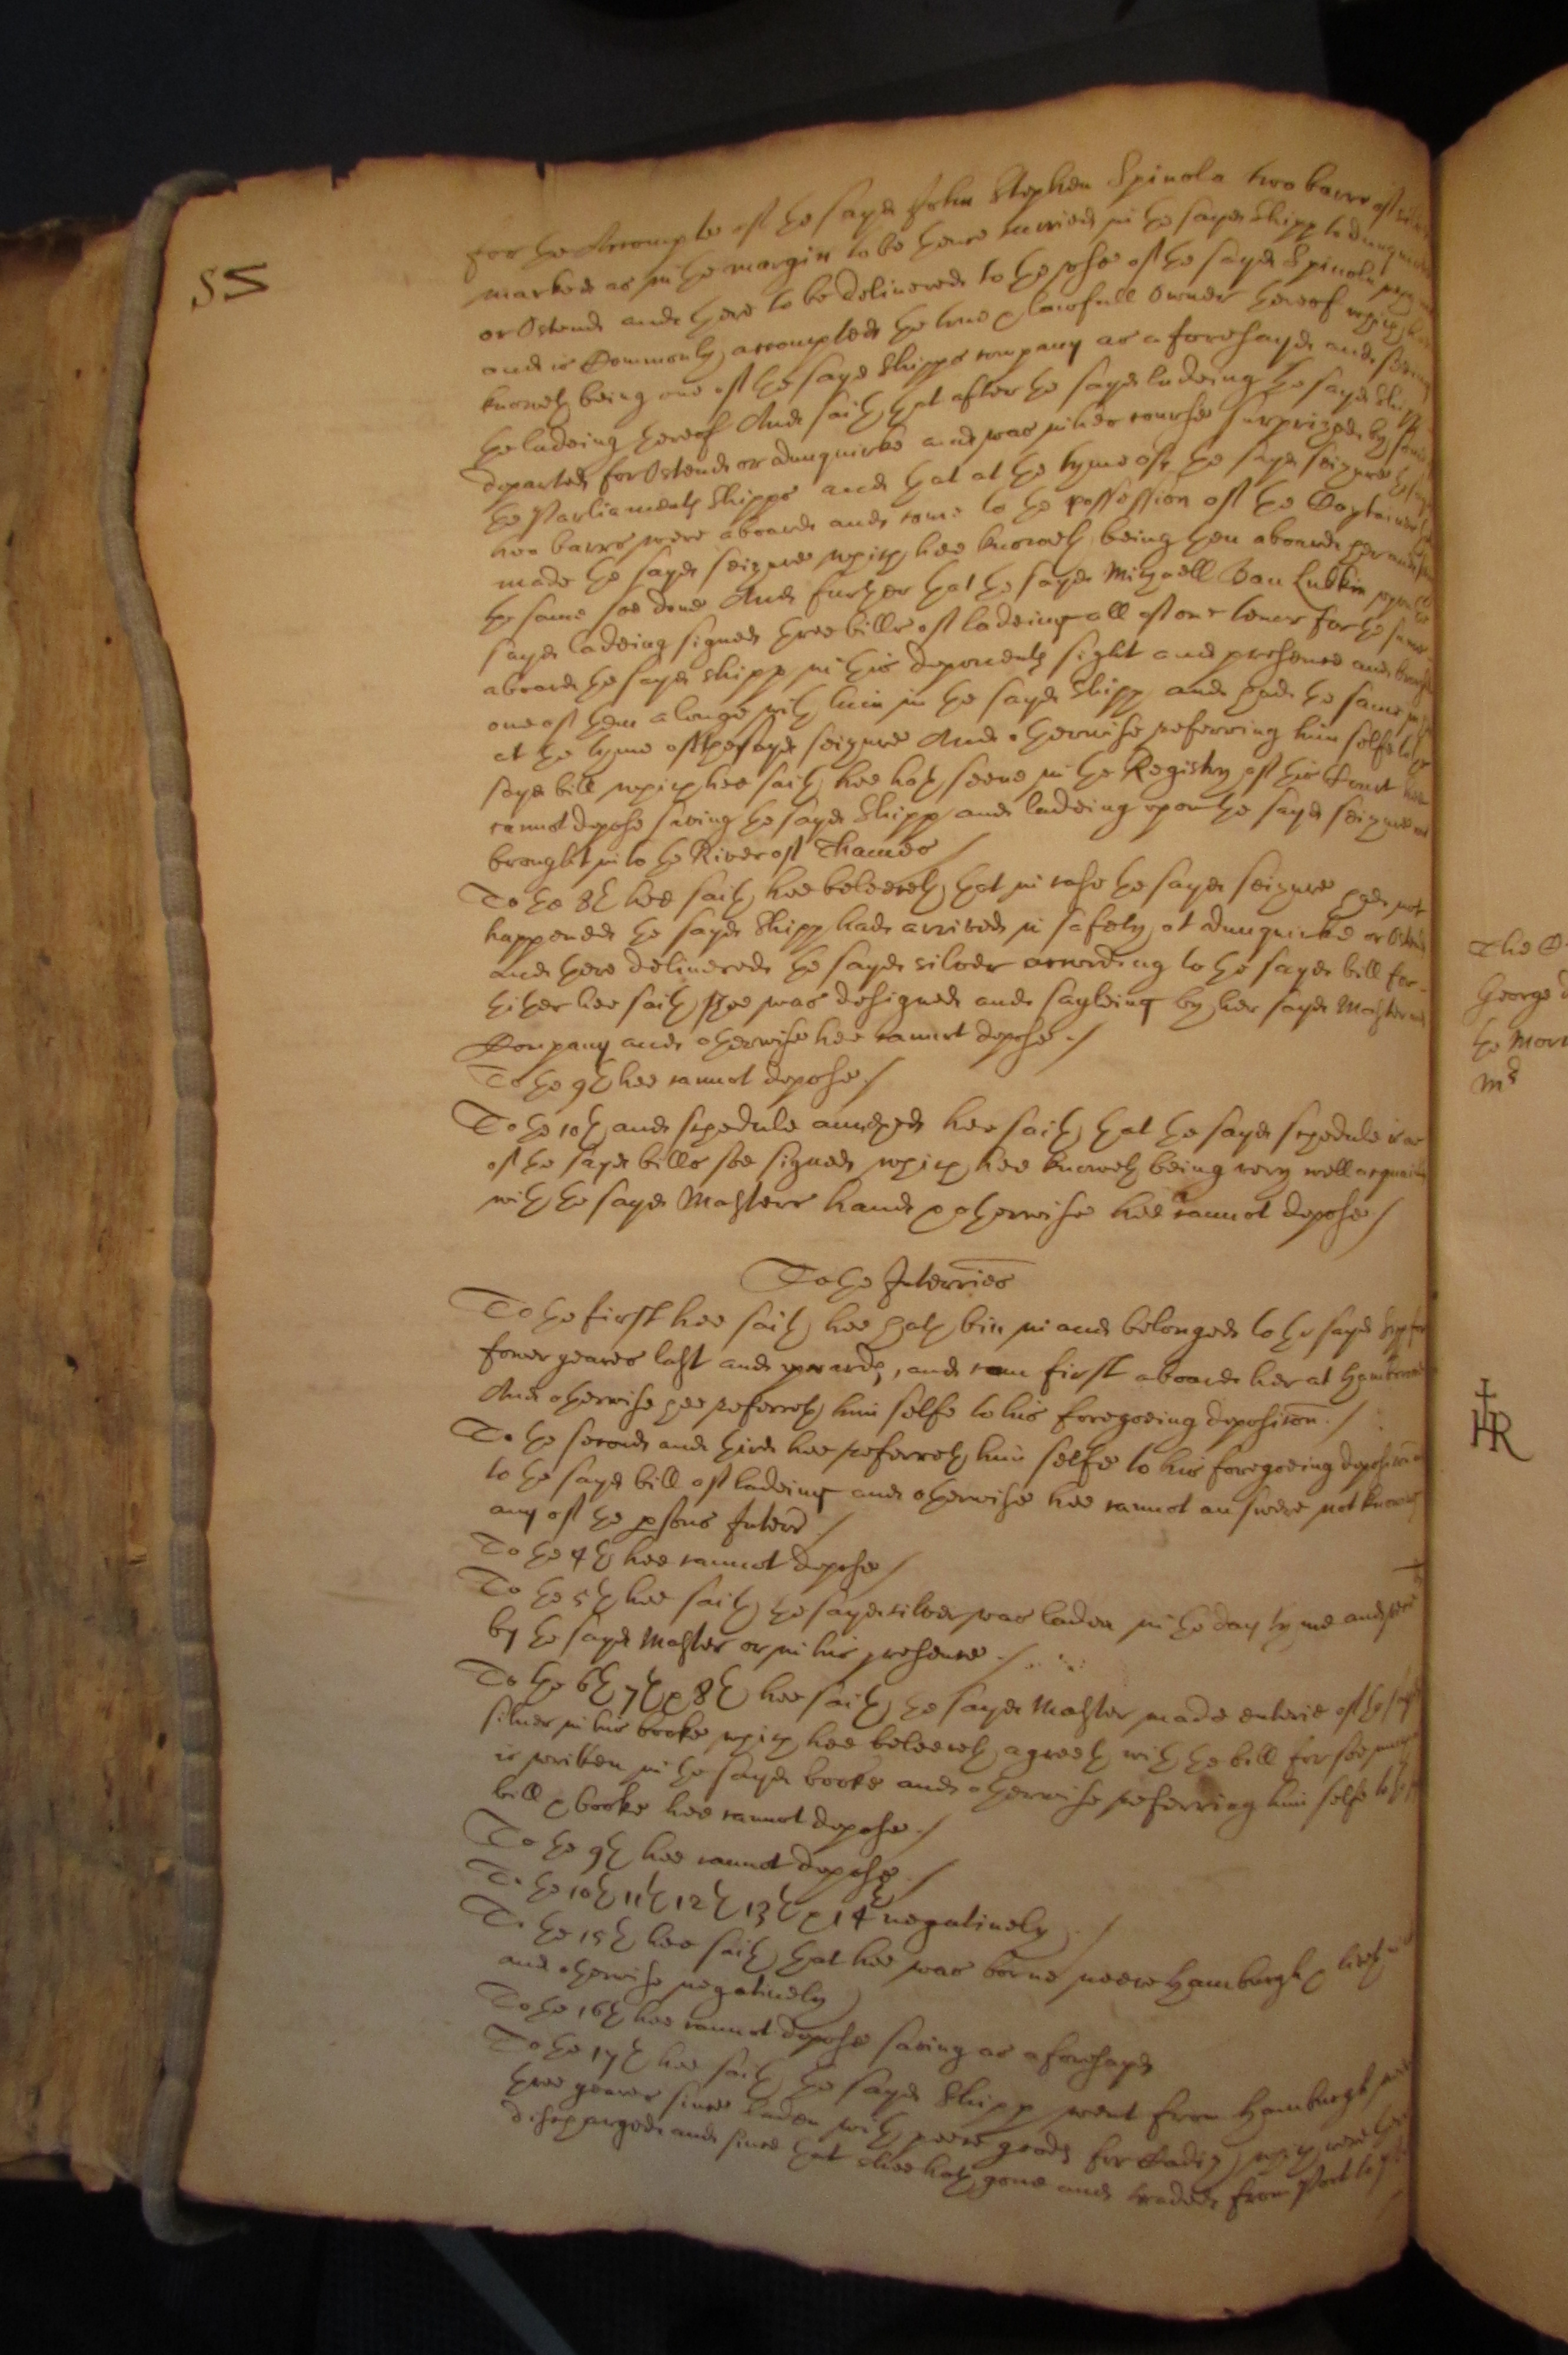 SS
for the Accompte of the sayd John Stephen Spinola two barrs of silver
marked as in the margin to be thence carried in the sayd Shipp to dunquirke
or Ostend and there to be delivered to the use of the sayd Spinola who was
and is Commonly accompted the true & lawfull Owner thereof which hee
knoweth being one of the sayd Shipps company as aforesayd and seeing
the ladeing thereof And saith that after the sayd ladeing the sayd Shipp
departed for Ostend or dunquirke and was in her course surprized by some of
the Parliaments Shipps and that at the tyme of the sayd seizure the sayd
two barrs were aboard and came to the possession of the Captaine that
made the sayd seizure which hee knoweth being then aboard her and
the same soe done And further that the sayd Michaell Van Lubkin upon the
sayd ladeing signed three bills of ladeing all of one tenor for the same
aboard the sayd shipp in this deponents sight and presence and brought
one of them alonge with him in the sayd Shipp and had the same
at the tyme of the sayd seizure And otherwise referring him selfe to the
sayd bill which hee saith hee hath seene in the Registry of this Court hee
cannot depose saving the sayd Shipp and ladeing upon the sayd seizure was
brought into the River of Thames /
To the 8th hee saith hee beleeveth that in case the sayd seizure had not
happened the sayd Shipp had arrived in safety at dunquirke or Ostend
and there delivered the sayd silver according to the sayd bill for
thither hee saith shee was designed and sayleing by her sayd Master and
Company and otherwise hee cannot depose ./
To the 9th hee cannot depose /
To the 10th and schedule annexed hee saith that the sayd schedule is one
of the sayd bills soe signed which hee knoweth being very well acquainted
with the sayd Masters hand & otherwise hee cannot depose /
To the Interries
To the first hee saith hee hath bin in and belonged to the sayd shipp for
fower yeares last and upwards, and cam first aboard her at Hamburgh
And otherwise hee referreth him selfe to his foregoeing deposicon . /
To the second and third hee referreth him selfe to his foregoeing deposicon &
to the sayd bill of ladeing and otherwise hee cannot answere not knowing
any of the psons Interr /
To the 4th hee cannot depose /
To the 5th hee saith the sayd silver was laden in the day tyme and
by the sayd Master or in his presence . /
To the 6th 7th & 8th hee saith the sayd Master made entrie of the sayd
silver in his booke which hee beleeveth agreeth with the bill for soe much
is written in the sayd booke and otherwise referring him selfe to the sayd
bill & booke hee cannot depose . /
To the 9th hee cannot depose . /
To the 10th 11th 12th 13th & 14th negatively . /
To the 15th hee saith that hee was borne neere Hamburgh & liveth
and otherwise negatively
To the 16th hee cannot depose saving as aforesayd
To the 17th hee saith the sayd Shipp went from Hamburgh
three yeares since laden with peece goods for Cadiz which were there
dischargeded and since that shee hath gone and traded from Port to Port
The
George
the
HR